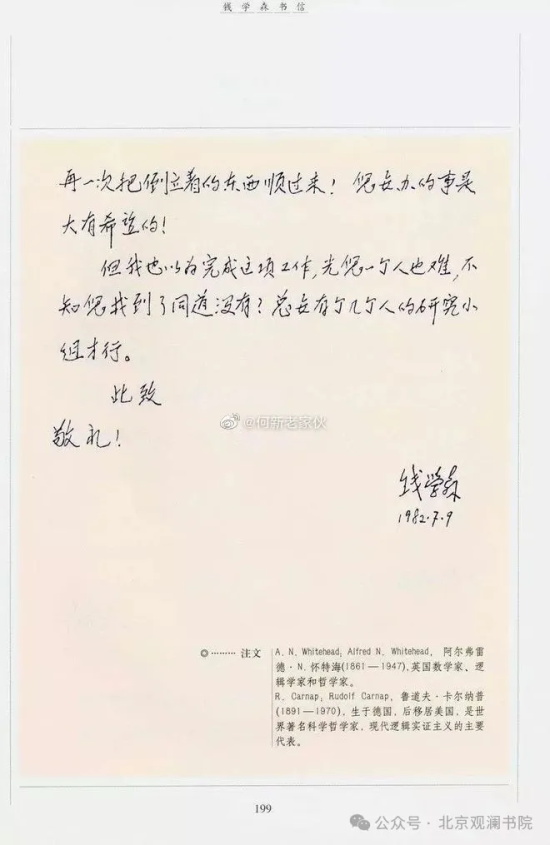 钱学森书信
再一次把倒立着的东西顺过来！您要办的事是
大有希望的！
但我也以为完成这项工作，光您一个人也难，不
知您找到了同道没有？总要有个几个人的研究小
组才行。
此致
敬礼！
@何新老家伙
钱学森
1982.7.9
◎………注文
A. N. Whitehead, Alfred N. Whitehead, 阿尔弗雷
德·N. 怀特海(1861—1947), 英国数学家、逻
辑学家和哲学家。
R. Carnap, Rudolf Carnap, 鲁道夫·卡尔纳普
(1891—1970), 生于德国, 后移居美国, 是世
界著名科学哲学家, 现代逻辑实证主义的主要
代表。
199
公众号·北京观澜书院